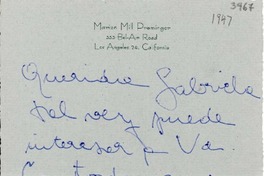 3967
1947
Marion Mill Preminger
333 Bel-Air Road
Los Angeles 24, California
Querida Gabriela
tal vez puede
interesar a Vd.